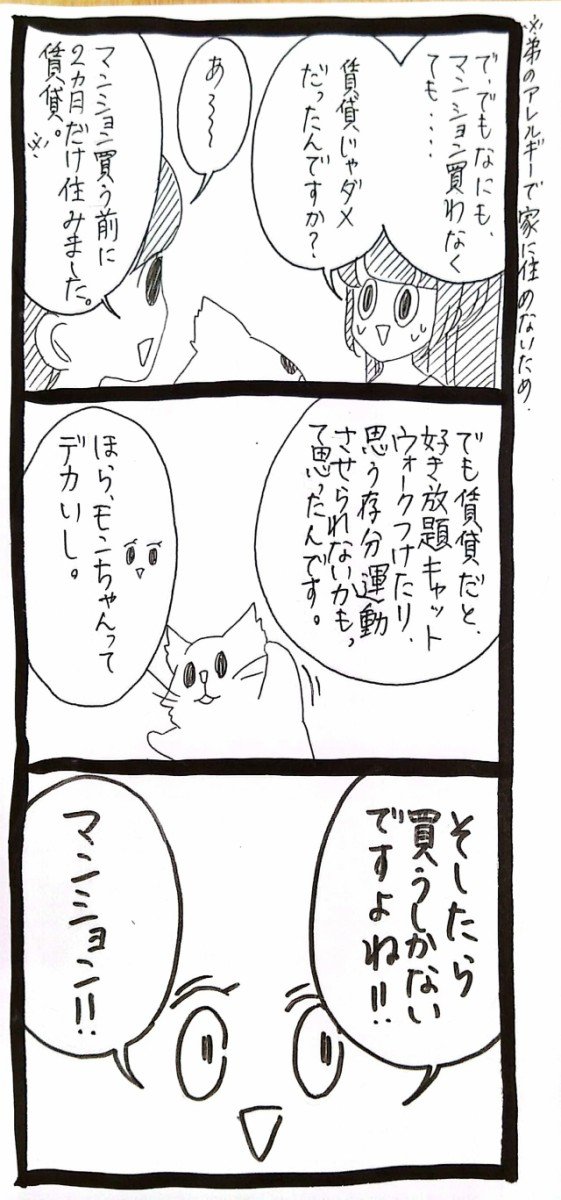 ※弟のアレルギーで家に住めないため.
で、でもなにも、
マンション買わなく
ても・・・・
賃貸じゃダメ
だったんですか？
あ〜〜
マンション買う前に
2ヵ月だけ住みました。
賃貸。※
でも賃貸だと、
好き放題キャット
ウォークつけたり、
思う存分運動
させられないかも、
て思ったんです。
ほら、モンちゃんって
デカいし。
そしたら
買うしかない
ですよね!!
マンション!!